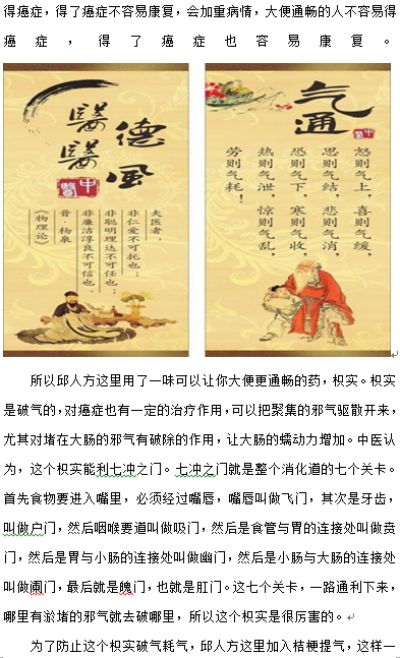 得癌症，得了癌症不容易康复，会加重病情，大便通畅的人不容易得
癌症，得了癌症也容易康复。
醫德
醫風
中醫
夫医者，
非仁爱不可托也；
非聪明理达不可任也；
非廉洁淳良不可信也。
晋·杨泉
《物理论》
气通
怒则气上，喜则气缓，
思则气结，悲则气消，
恐则气下，寒则气收，
热则气泄，惊则气乱，
劳则气耗！
所以邱人方这里用了一味可以让你大便更通畅的药，枳实。枳实
是破气的，对癌症也有一定的治疗作用，可以把聚集的邪气驱散开来，
尤其对堵在大肠的邪气有破除的作用，让大肠的蠕动力增加。中医认
为，这个枳实能利七冲之门。七冲之门就是整个消化道的七个关卡。
首先食物要进入嘴里，必须经过嘴唇，嘴唇叫做飞门，其次是牙齿，
叫做户门，然后咽喉要道叫做吸门，然后是食管与胃的连接处叫做贲
门，然后是胃与小肠的连接处叫做幽门，然后是小肠与大肠的连接处
叫做阑门，最后就是魄门，也就是肛门。这七个关卡，一路通利下来，
哪里有淤堵的邪气就去破哪里，所以这个枳实是很厉害的。
为了防止这个枳实破气耗气，邱人方这里加入桔梗提气，这样一